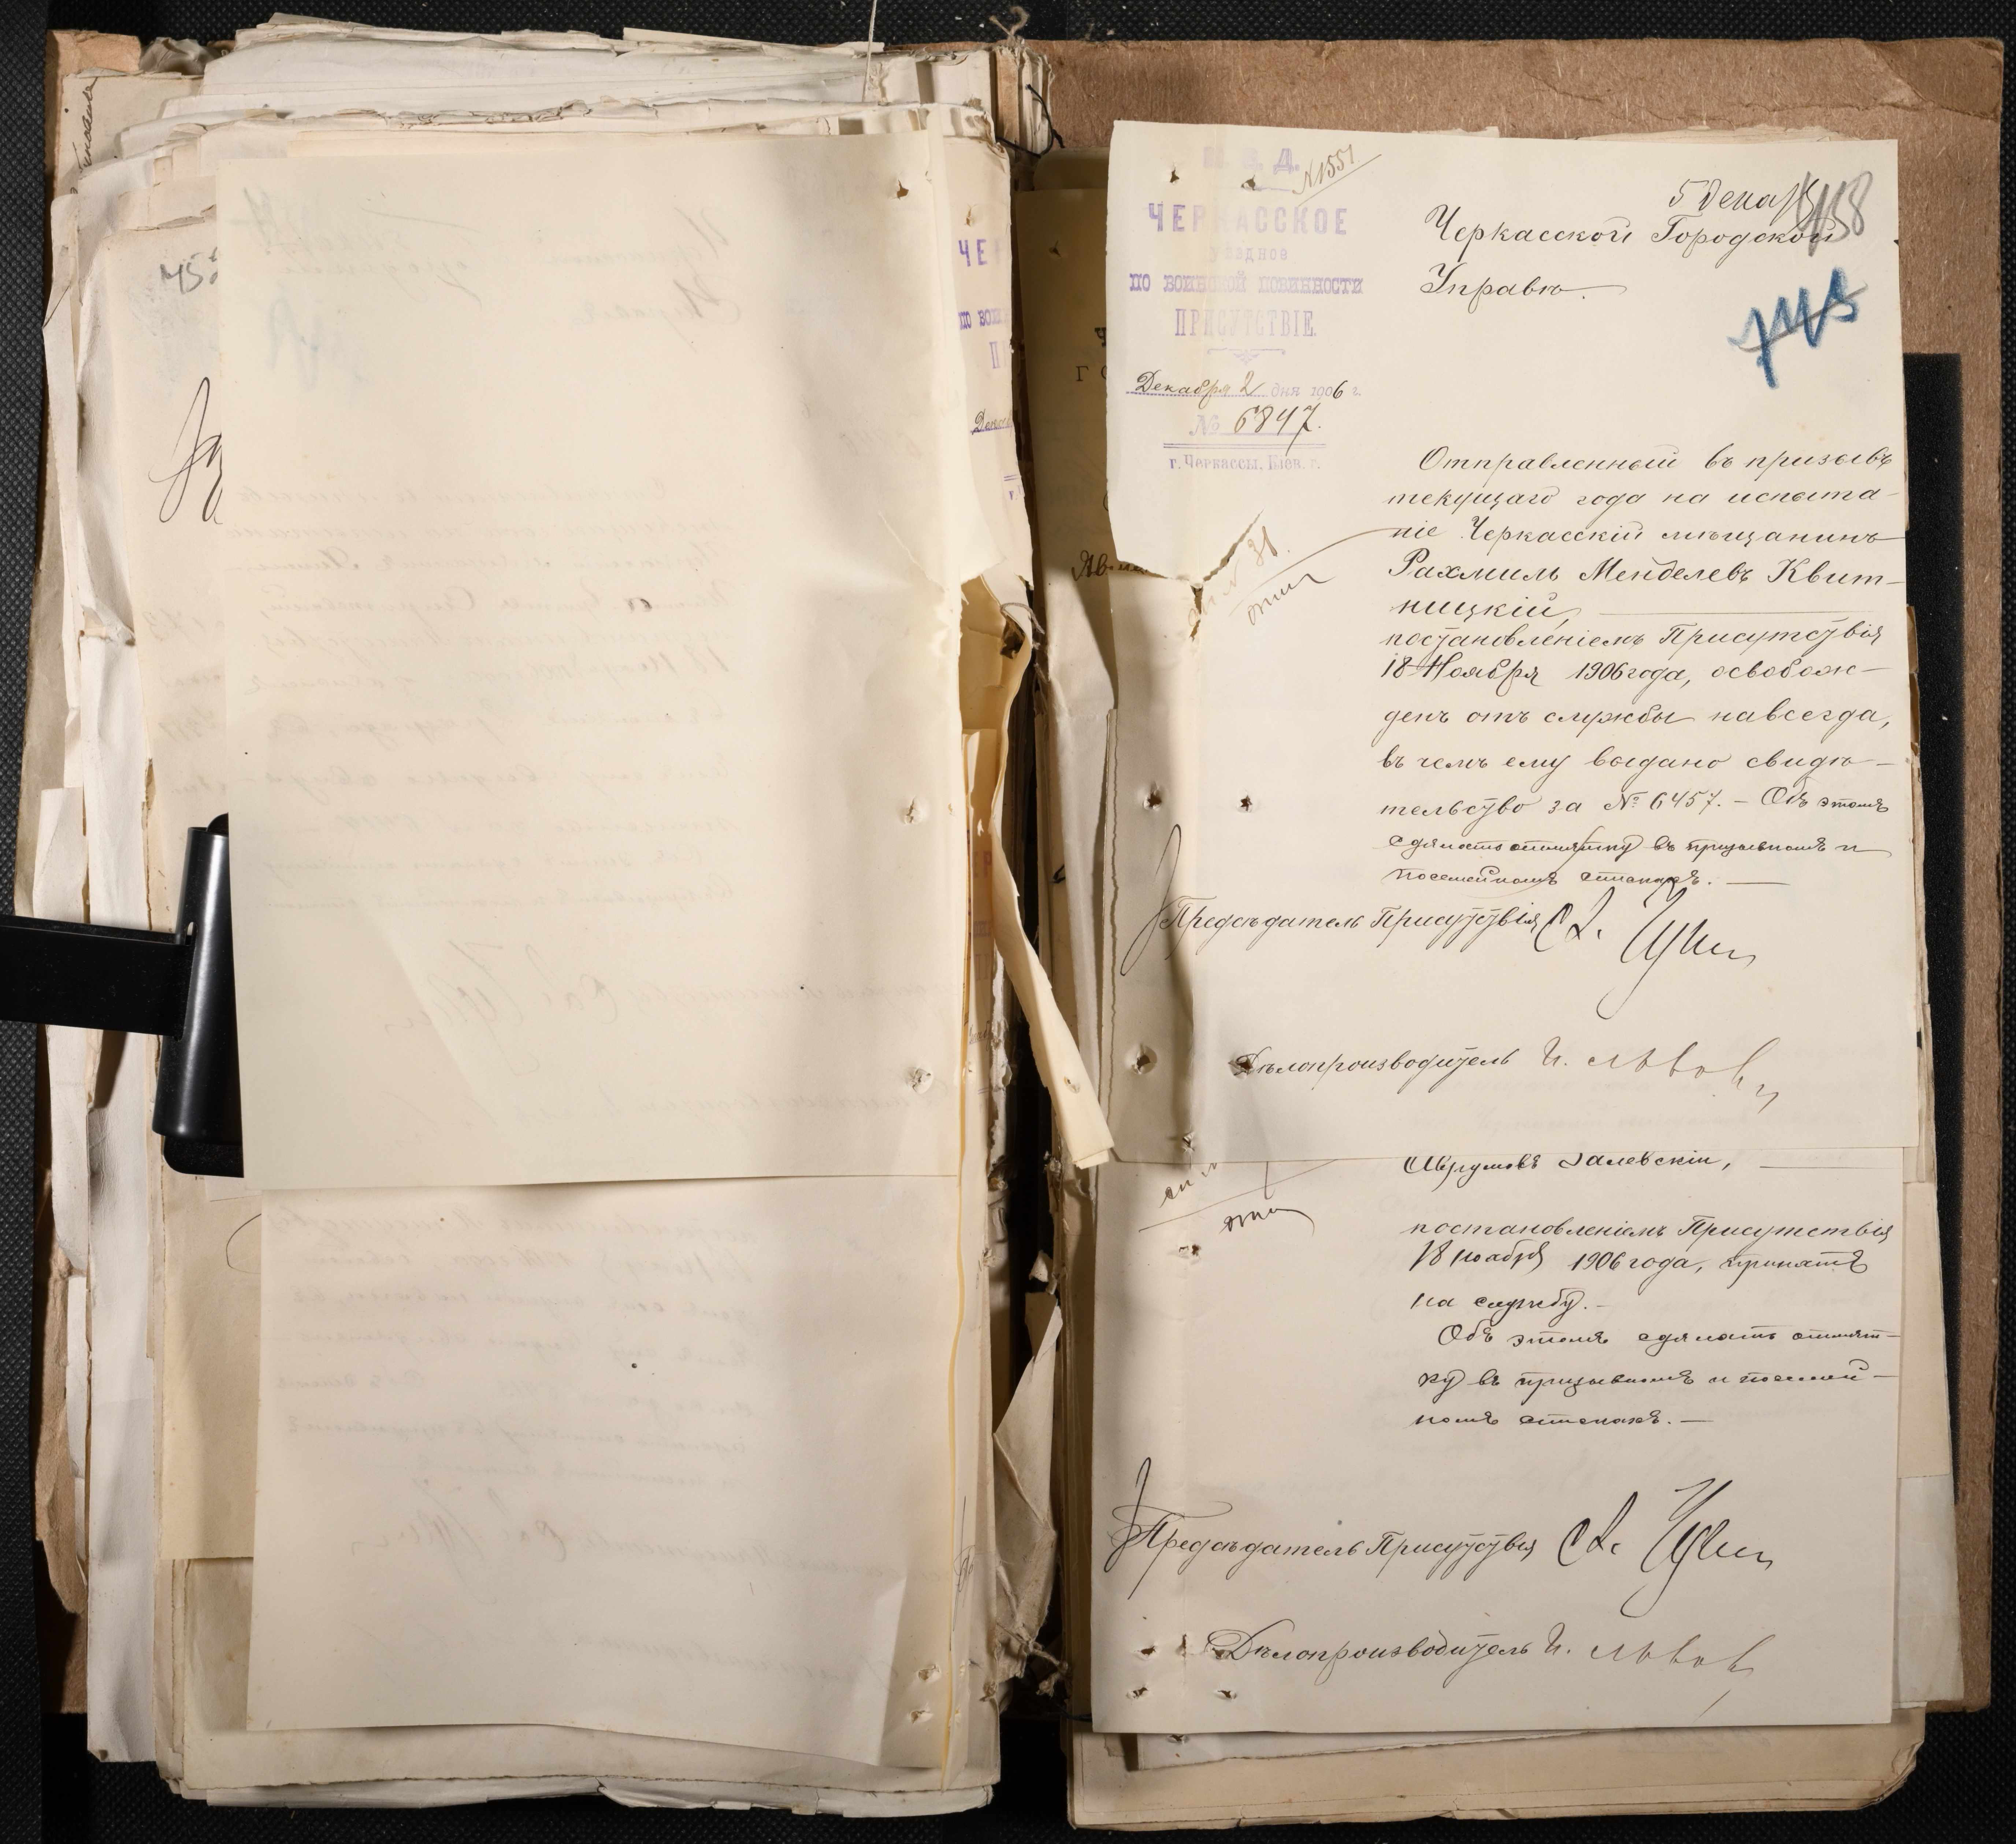 М. В. Д.
№ 1551
ЧЕРКАССКОЕ
уѣздное
по воинской повинности
ПРИСУТСТВІЕ.
Декабря 2 дня 1906 г.
№ 6847.
г. Черкассы, Кіев. г.
5 Декаб
458
Черкасской Городской
Управѣ.
745
Отправленный въ призывъ
текущаго года на испыта-
ніе Черкасскій мѣщанинъ
Рахмиль Менделевъ Квит-
ницкій,
постановленіемъ Присутствія
18 Ноября 1906 года, освобож-
денъ отъ службы навсегда,
въ чемъ ему выдано свидѣ-
тельство за № 6457. – Объ этомъ
сдѣлать отмѣтку въ призывномъ и
посемейномъ спискѣ. —
Предсѣдатель Присутствія
Дѣлопроизводитель И. Львов
Аврумовъ Залевскій,
постановленіемъ Присутствія
18 ноября 1906 года, принятъ
на службу. –
Объ этомъ сдѣлать отмѣт-
ку въ призывномъ и посемей-
номъ спискѣ. —
Предсѣдатель Присутствія
Дѣлопроизводитель И. Львов